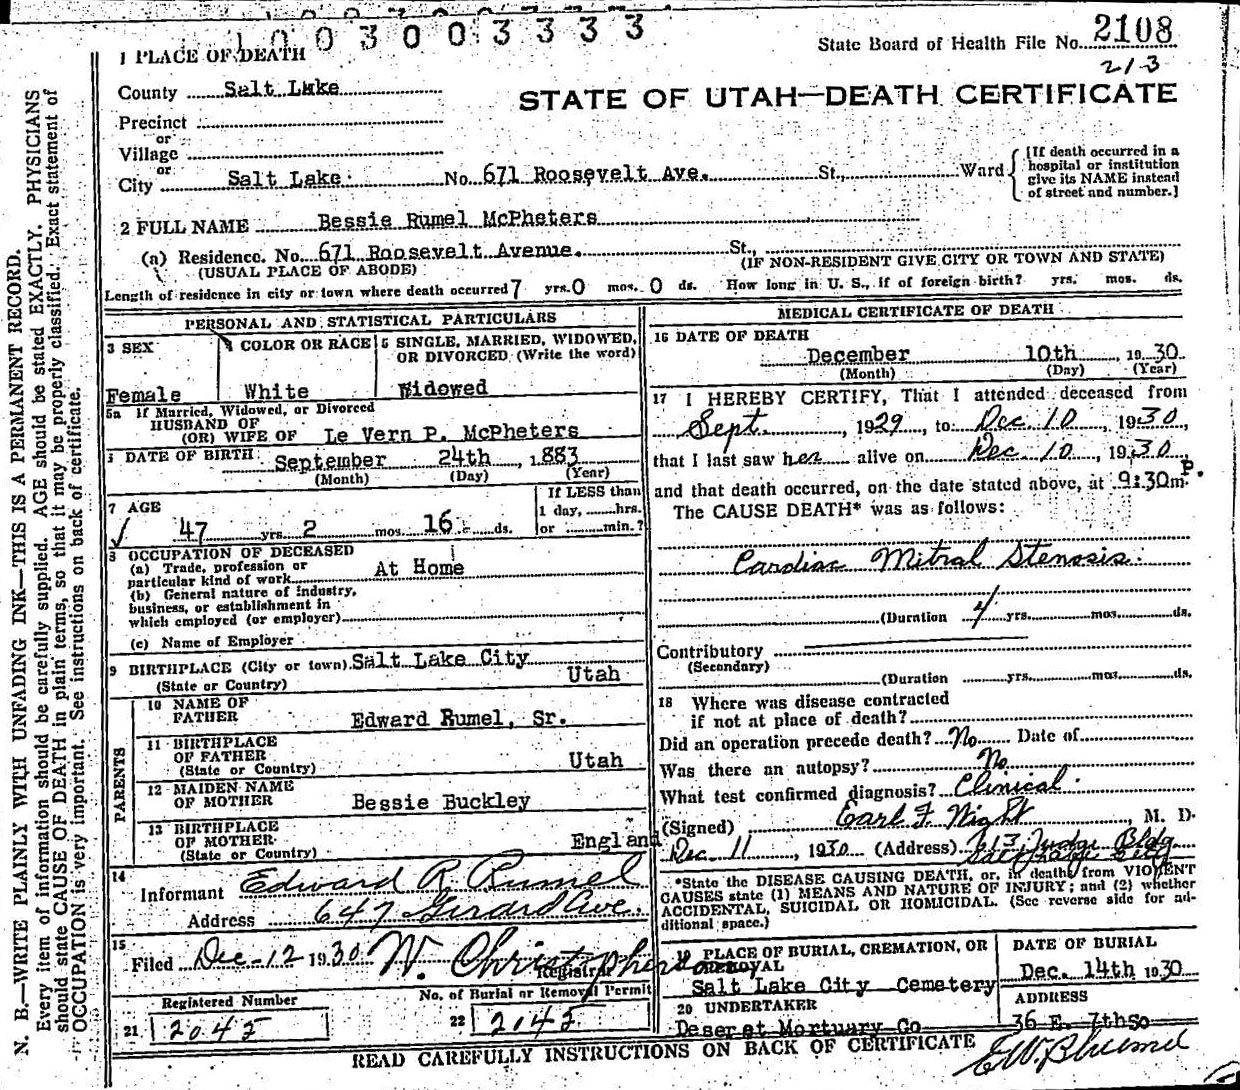 1003003333
State Board of Health File No. 2108
213
1 PLACE OF DEATH
STATE OF UTAH—DEATH CERTIFICATE
County Salt Lake
Precinct
or
Village
or
City Salt Lake No. 671 Roosevelt Ave. St., Ward
[If death occurred in a hospital or institution give its NAME instead of street and number.]
2 FULL NAME Bessie Rumel McPheters
(a) Residence. No. 671 Roosevelt Avenue. St.,
(USUAL PLACE OF ABODE) (IF NON-RESIDENT GIVE CITY OR TOWN AND STATE)
Length of residence in city or town where death occurred 7 yrs. 0 mos. 0 ds. How long in U. S., if of foreign birth? yrs. mos. ds.
PERSONAL AND STATISTICAL PARTICULARS
3 SEX
Female
4 COLOR OR RACE
White
5 SINGLE, MARRIED, WIDOWED, OR DIVORCED (Write the word)
Widowed
5a If Married, Widowed, or Divorced
HUSBAND OF
(OR) WIFE OF Le Vern P. McPheters
DATE OF BIRTH September 24th, 1883
(Month) (Day) (Year)
7 AGE
47 yrs. 2 mos. 16 ds.
If LESS than
1 day, hrs.
or min.?
8 OCCUPATION OF DECEASED
(a) Trade, profession or
particular kind of work At Home
(b) General nature of industry,
business, or establishment in
which employed (or employer)
(c) Name of Employer
9 BIRTHPLACE (City or town) Salt Lake City
(State or Country) Utah
PARENTS
10 NAME OF
FATHER Edward Rumel, Sr.
11 BIRTHPLACE
OF FATHER
(State or Country) Utah
12 MAIDEN NAME
OF MOTHER Bessie Buckley
13 BIRTHPLACE
OF MOTHER
(State or Country) England
14
Informant Edward R Rumel
Address 647 Girard Ave.
15
Filed Dec-12 1930 W. Christopherson
Registrar
Registered Number
21 2045
No. of Burial or Removal Permit
22 2145
MEDICAL CERTIFICATE OF DEATH
16 DATE OF DEATH
December 10th, 1930
(Month) (Day) (Year)
17 I HEREBY CERTIFY, That I attended deceased from
Sept., 1929, to Dec. 10, 1930,
that I last saw her alive on Dec. 10, 1930,
and that death occurred, on the date stated above, at 9:30 P.m.
The CAUSE DEATH* was as follows:
Cardiac Mitral Stenosis.
(Duration 4 yrs. mos. ds.
Contributory
(Secondary)
(Duration yrs. mos. ds.
18 Where was disease contracted
if not at place of death?
Did an operation precede death? No Date of
Was there an autopsy? No
What test confirmed diagnosis? Clinical.
(Signed) Earl F. Wight, M. D.
Dec. 11, 1930 (Address) 613 Judge Bldg
Salt Lake City
*State the DISEASE CAUSING DEATH, or, in deaths from VIOLENT
CAUSES state (1) MEANS AND NATURE OF INJURY; and (2) whether
ACCIDENTAL, SUICIDAL OR HOMICIDAL. (See reverse side for additional space.)
19 PLACE OF BURIAL, CREMATION, OR
REMOVAL
Salt Lake City Cemetery
DATE OF BURIAL
Dec. 14th 1930
20 UNDERTAKER
Deseret Mortuary Co
ADDRESS
36 E. 7th So
READ CAREFULLY INSTRUCTIONS ON BACK OF CERTIFICATE
N. B.—WRITE PLAINLY WITH UNFADING INK—THIS IS A PERMANENT RECORD.
Every item of information should be carefully supplied. AGE should be stated EXACTLY. PHYSICIANS
should state CAUSE OF DEATH in plain terms, so that it may be properly classified. Exact statement of
OCCUPATION is very important. See instructions on back of certificate.